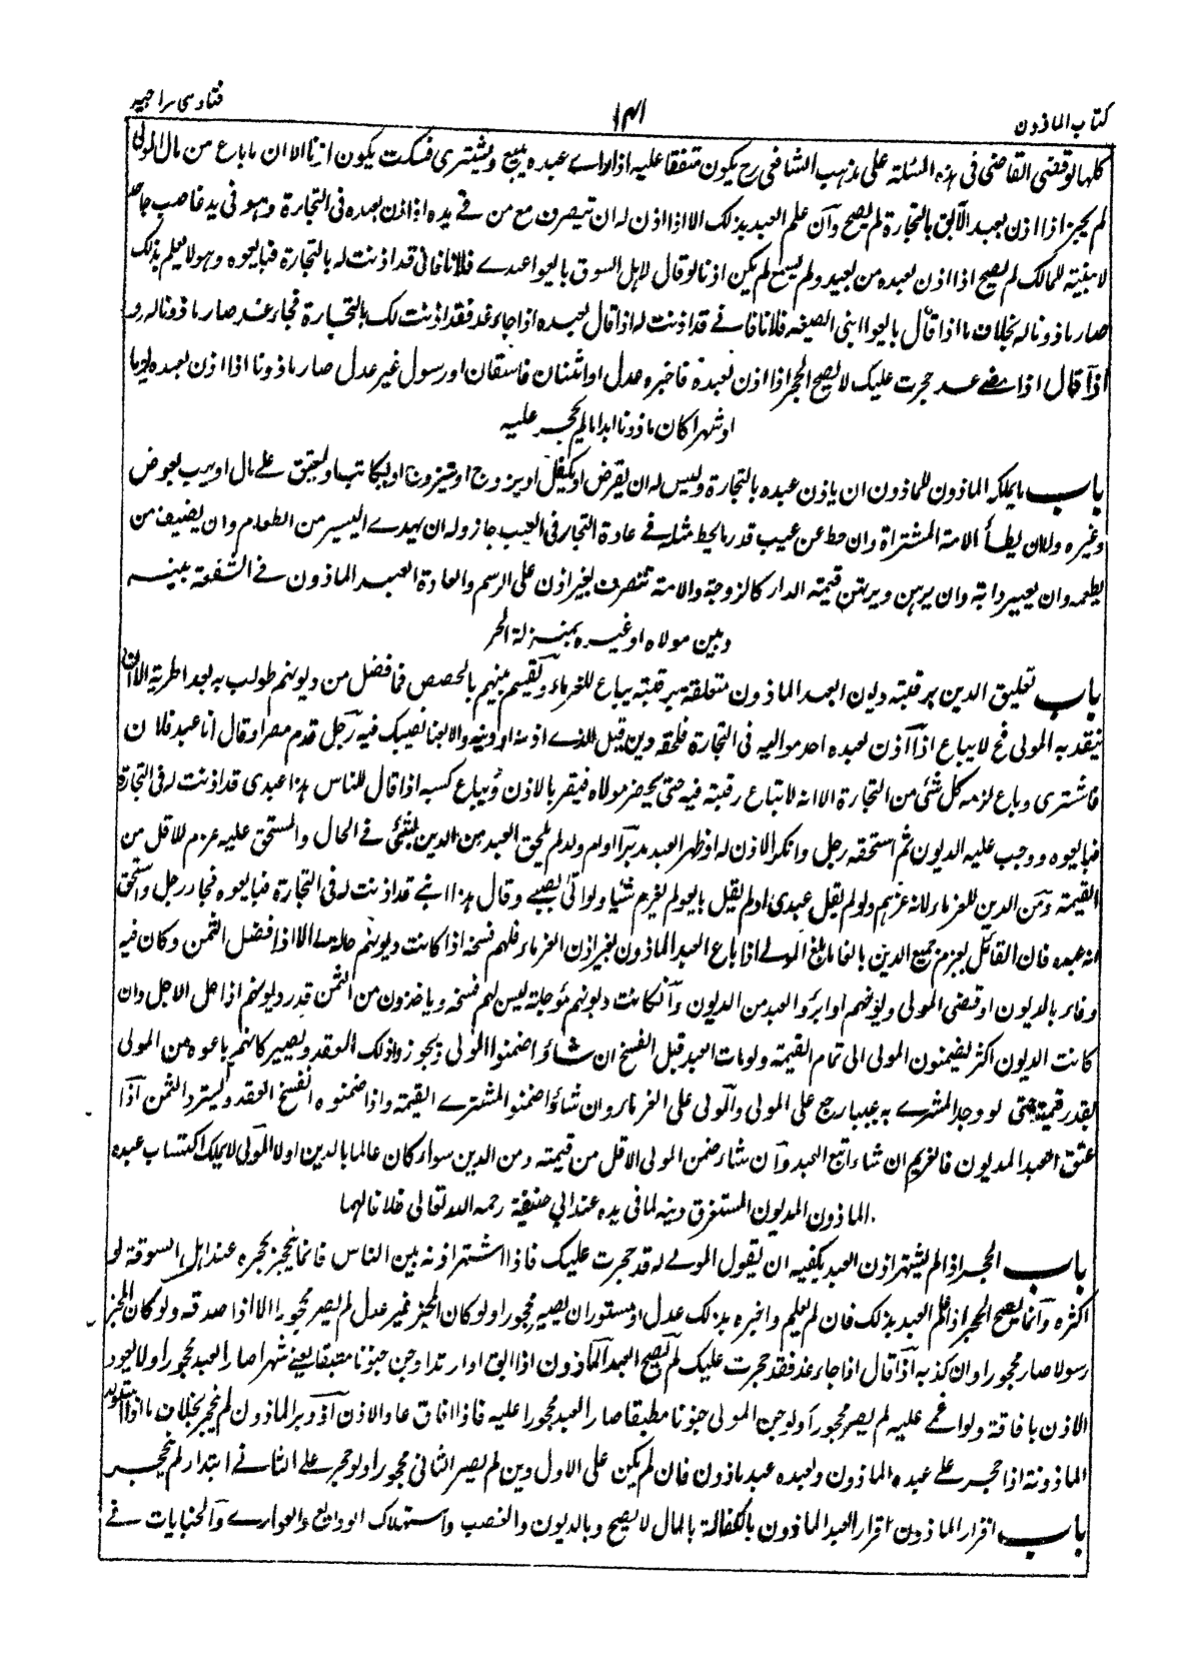 كتاب الماذون
١٤١
فتاوى سراجيه
كلها لو قضى القاضى فى هذه المسئلة على مذهب الشافعى رح يكون متفقا عليه اذا راى عبده يبيع ويشترى فسكت يكون اذنا الا ان ما باع من مال المولى
لم يجز اذا اذن بعبده الآبق بالتجارة لم يصح وآن علم العبد بذلك الا اذا اذن له ان يتصرف مع من فى يده اذا اذن بعبده فى التجارة وهو فى يد غاصب جاحد
لا بينة للمالك لم يصح اذا اذن لعبده من بعيد ولم يسمع لم يكن اذنا لو قال لاهل السوق بايعوا عبدى فلانا فانى قد اذنت له بالتجارة فبايعوه وهو لا يعلم بذلك
صار ماذونا له بخلاف ما اذا قال بايعوا ابنى الصغير فلانا فانى قد اذنت له اذا قال لعبده اذا جاء غد فقد اذنت لك بالتجارة فجاء غد صار ماذونا له و
اذآ قال اذا مضى غد حجرت عليك لا يصح الحجر اذا اذن لعبده فاخبره عدل او اثنان فاسقان او رسول غير عدل صار ماذونا اذا اذن لعبده يوما
او شهرا كان ماذونا ابدا ما لم يحجر عليه
باب ما يملكه الماذون للماذون ان ياذن عبده بالتجارة وليس له ان يقرض او يكفل او يزوج او يتزوج او يكاتب او يعتق على مال او يهب بعوض
وغيره ولا ان يطأ الامة المشتراة وان حط عن عيب قدر ما يحط مثله فى عادة التجار فى العيب جاز وله ان يهدى اليسير من الطعام وان يضيف من
يطعمه وان يعير دابة وان يرهن ويرتهن قيمته الدار كالزوجة والامة تتصرف بغير اذن على الرسم والعادة العبد الماذون فى الشفعة بينه
وبين مولاه او غيره بمنزلة الحر
باب تعليق الدين برقبته ديون العبد الماذون متعلقة برقبته يباع للغرماء ويقسم بينهم بالحصص فما فضل من ديونهم طولب به بعد الحرية الا ان
ينقد به المولى فح لا يباع اذاآذن لعبده احد مواليه فى التجارة فلحقه دين قيل للذى اذن له اد دينه والا بعنا نصيبك فيه رجل قدم مصرا وقال انا عبد فلان
فاشترى وباع لزمه كل شئ من التجارة الا انه لا تباع رقبته فيه حتى يحضر مولاه فيقر بالاذن ويباع كسبه اذا قال للناس هذا عبدى قد اذنت له فى التجارة
فبايعوه ووجب عليه الديون ثم استحقه رجل وانكر الاذن له او ظهر العبد مدبرا او ام ولد لم يلحق العبد من الدين شئ فى الحال والمستحق عليه غرم للاقل من
القيمة ومن الدين للغرماء لانه غرهم ولو لم يقل عبدى او لم يقل بايعوه لم يغرم شيئا ولو اتى بصبى وقال هذا ابنى قد اذنت له فى التجارة فبايعوه فجاء رجل واستحق
انه عبده فان القائل يغرم جميع الدين بالغا ما بلغ المولى اذا باع العبد الماذون بغير اذن الغرماء فلهم فسخه اذا كانت ديونهم حالة الا اذا فضل الثمن وكان فيه
وفاء بالديون او قضى المولى ديونهم او ابرؤ العبد من الديون وآنكانت ديونهم مؤجلة ليس لهم فسخه وياخذون من الثمن قدر ديونهم اذا حل الاجل وان
كانت الديون اكثر يضمنون المولى الى تمام القيمة ولو مات العبد قبل الفسخ ان شاؤا ضمنوا المولى ويجوز ذلك العقد ويصير كانهم باعوه من المولى
بقدر قيمة حتى لو وجد المشترى به عيبا رجع على المولى والمولى على الغرماء وان شاؤا ضمنوا المشترى القيمة واذا ضمنوه انفسخ العقد ويسترد الثمن اذآ
عتق العبد المديون فالغريم ان شاء اتبع العبد وآن شاء ضمن المولى الاقل من قيمته ومن الدين سواء كان عالما بالدين اولا المولى لا يملك اكتساب عبده
الماذون المديون المستغرق دينه لما فى يده عند ابى حنيفة رحمه الله تعالى خلافا لهما
باب الحجر اذا لم يشتهر اذن العبد يكفيه ان يقول المولى له قد حجرت عليك فاذا اشتهر اذنه بين الناس فانما ينحجر بحجره عند اهل السوقة او
اكثره وآنما يصح الحجر اذا علم العبد بذلك فان لم يعلم واخبره بذلك عدل او مستوران يصير محجورا ولو كان المخبر غير عدل لم يصر محجورا الا اذا صدقه ولو كان المخبر
رسولا صار محجورا وان كذبه اذآ قال اذا جاء غد فقد حجرت عليك لم يصح العبد الماذون اذا ابق او ارتد او جن جنونا مطبقا يعنى شهرا صار العبد محجورا ولا يعود
الاذن بافاقة ولو اغمى عليه لم يصر محجورا ولو جن المولى جنونا مطبقا صار العبد محجورا عليه فاذا افاق عاد الاذن اذآ دبر الماذون لم يحجر بخلاف ما اذا استولد
الماذونة اذا حجر على عبده الماذون ولعبده عبد ماذون فان لم يكن على الاول دين لم يصر الثانى محجورا ولو حجر على الثانى ابتداء لم ينحجر
باب اقرار الماذون اقرار العبد الماذون بالكفالة بالمال لا يصح وبالديون والغصب واستهلاك الودائع والعوارى والجنايات فى